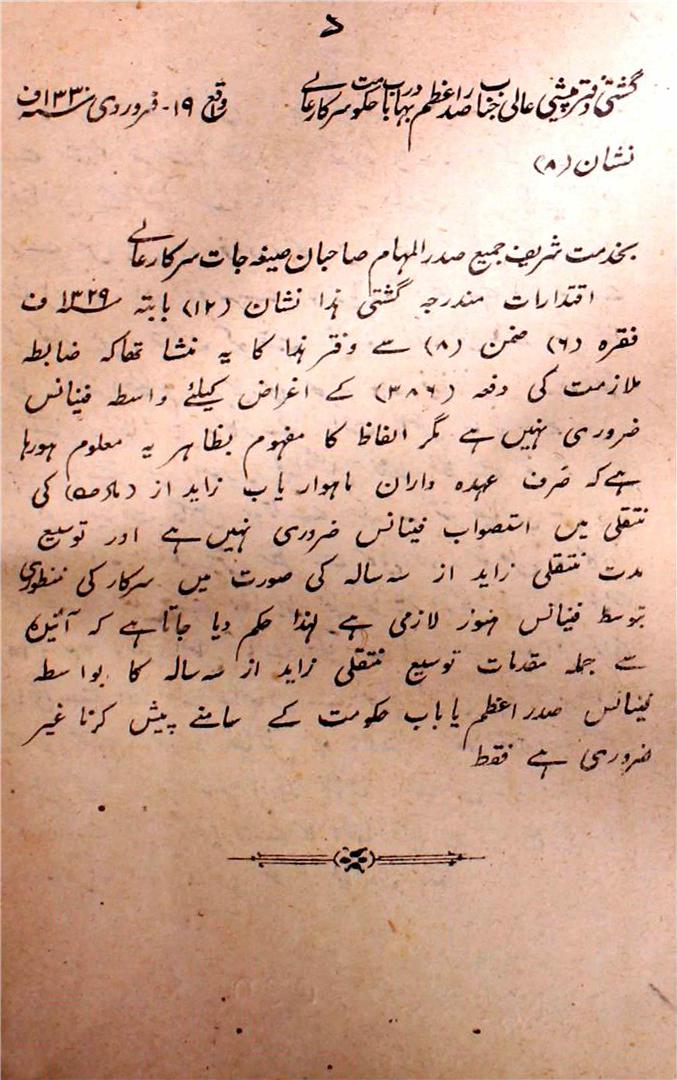 ۷
گشتی دفتر پیشی عالی جناب صدر اعظم بہادر باب حکومت سرکار عالے واقع ۱۹۔ فروردی سنہ ۱۳۳۰ ف
نشان (۸)
بخدمت شریف جمیع صدر المہام صاحبان صیغہ جات سرکار عالے
اقتدارات مندرجہ گشتی ہذا نشان (۱۲) بابتہ سنہ ۱۳۲۹ ف
فقرہ (۶) ضمن (۸) سے دفتر ہذا کا یہ منشا تھا کہ ضابطہ
ملازمت کی دفعہ (۳۸۶) کے اغراض کیلئے واسطہ فینانس
ضروری نہیں ہے مگر الفاظ کا مفہوم بظاہر یہ معلوم ہورہا
ہے کہ صرف عہدہ داران ماہوار یاب زاید از کی
منتقلی میں استصواب فینانس ضروری نہیں ہے اور توسیع
مدت منتقلی زاید از سہ سالہ کی صورت میں سرکار کی منظوری
بتوسط فینانس ہنوز لازمی ہے۔ لہذا حکم دیا جاتا ہے کہ آئندہ
سے جملہ مقدمات توسیع منتقلی زاید از سہ سالہ کا بواسطہ
فینانس صدر اعظم یا باب حکومت کے سامنے پیش کرنا غیر
ضروری ہے فقط